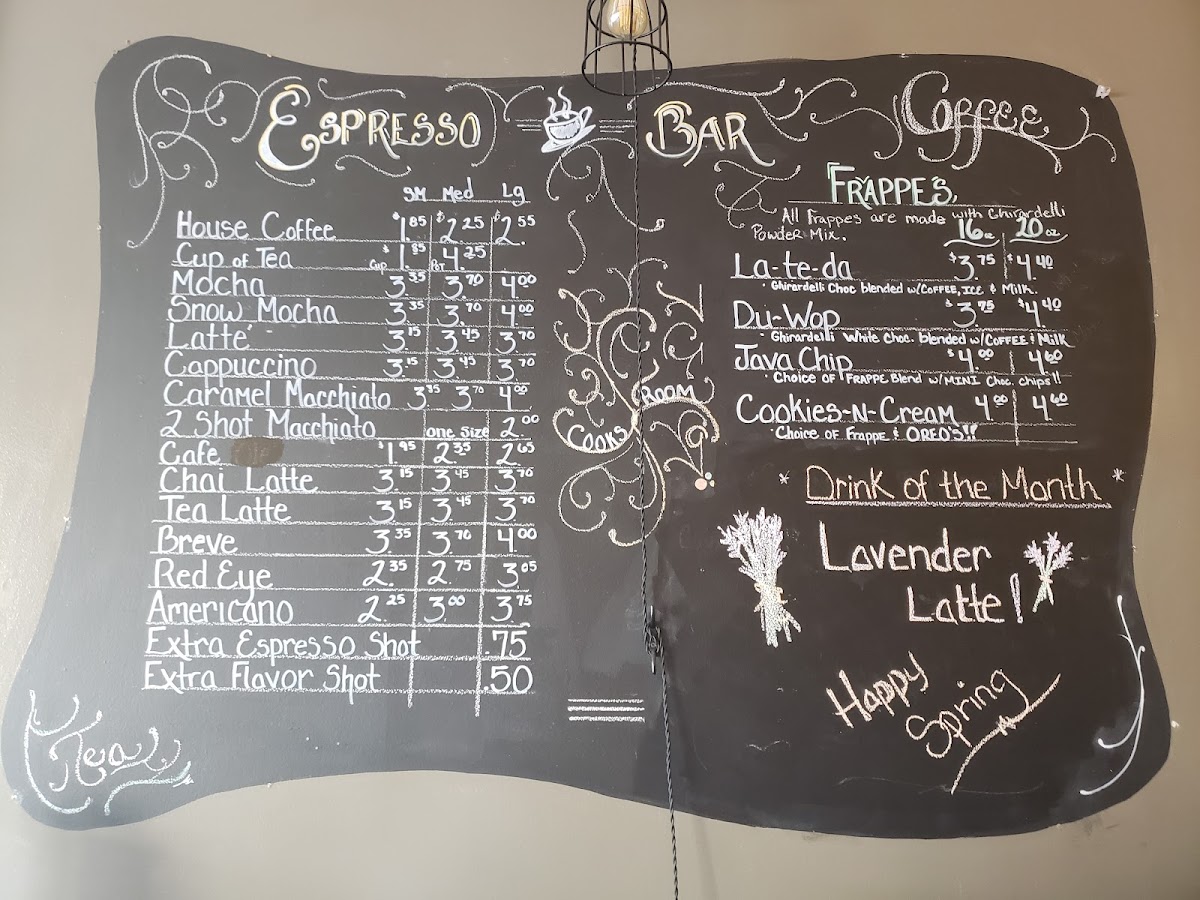 Espresso Bar
Coffee
SM Med Lg
House Coffee $1.85 $2.25 $2.55
Cup of Tea Cup $1.85 Pot 4.25
Mocha 3.35 3.70 4.00
Snow Mocha 3.35 3.70 4.00
Latte' 3.15 3.45 3.70
Cappuccino 3.15 3.45 3.70
Caramel Macchiato 3.35 3.70 4.00
2 Shot Macchiato one size 2.00
Cafe $1.95 2.35 2.65
Chai Latte 3.15 3.45 3.70
Tea Latte 3.15 3.45 3.70
Breve 3.35 3.70 4.00
Red Eye 2.35 2.75 3.05
Americano 2.25 3.00 3.75
Extra Espresso Shot .75
Extra Flavor Shot .50
Tea
Cooks Room
Frappe's
All frappes are made with Ghirardelli
Powder Mix. 16oz 20oz
La-te-da $3.75 $4.40
· Ghirardelli Choc blended w/Coffee, Ice & Milk.
Du-Wop $3.75 $4.40
· Ghirardelli White Choc. blended w/Coffee & Milk
Java Chip $4.00 4.60
· Choice of Frappe Blend w/MINI Choc. chips!!
Cookies-N-Cream 4.00 4.60
· Choice of Frappe & OREO'S!!
* Drink of the Month *
Lavender
Latte!
Happy
Spring